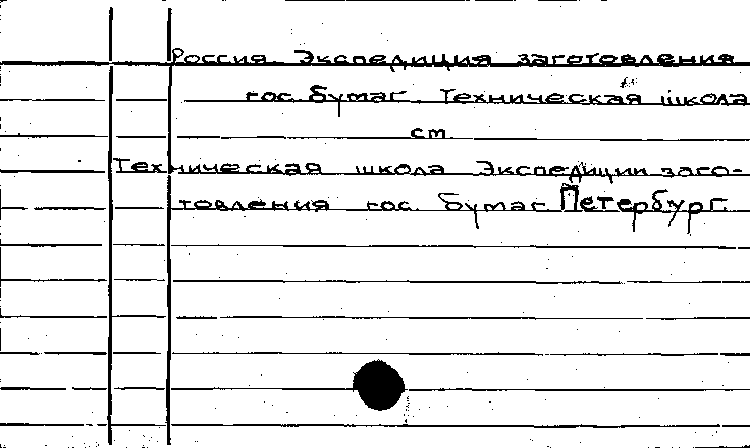 Россия. Экспедиция заготовления
гос. бумаг. Техническая школа
см.
Техническая школа Экспедиции заго-
товления гос. бумаг. Петербург.